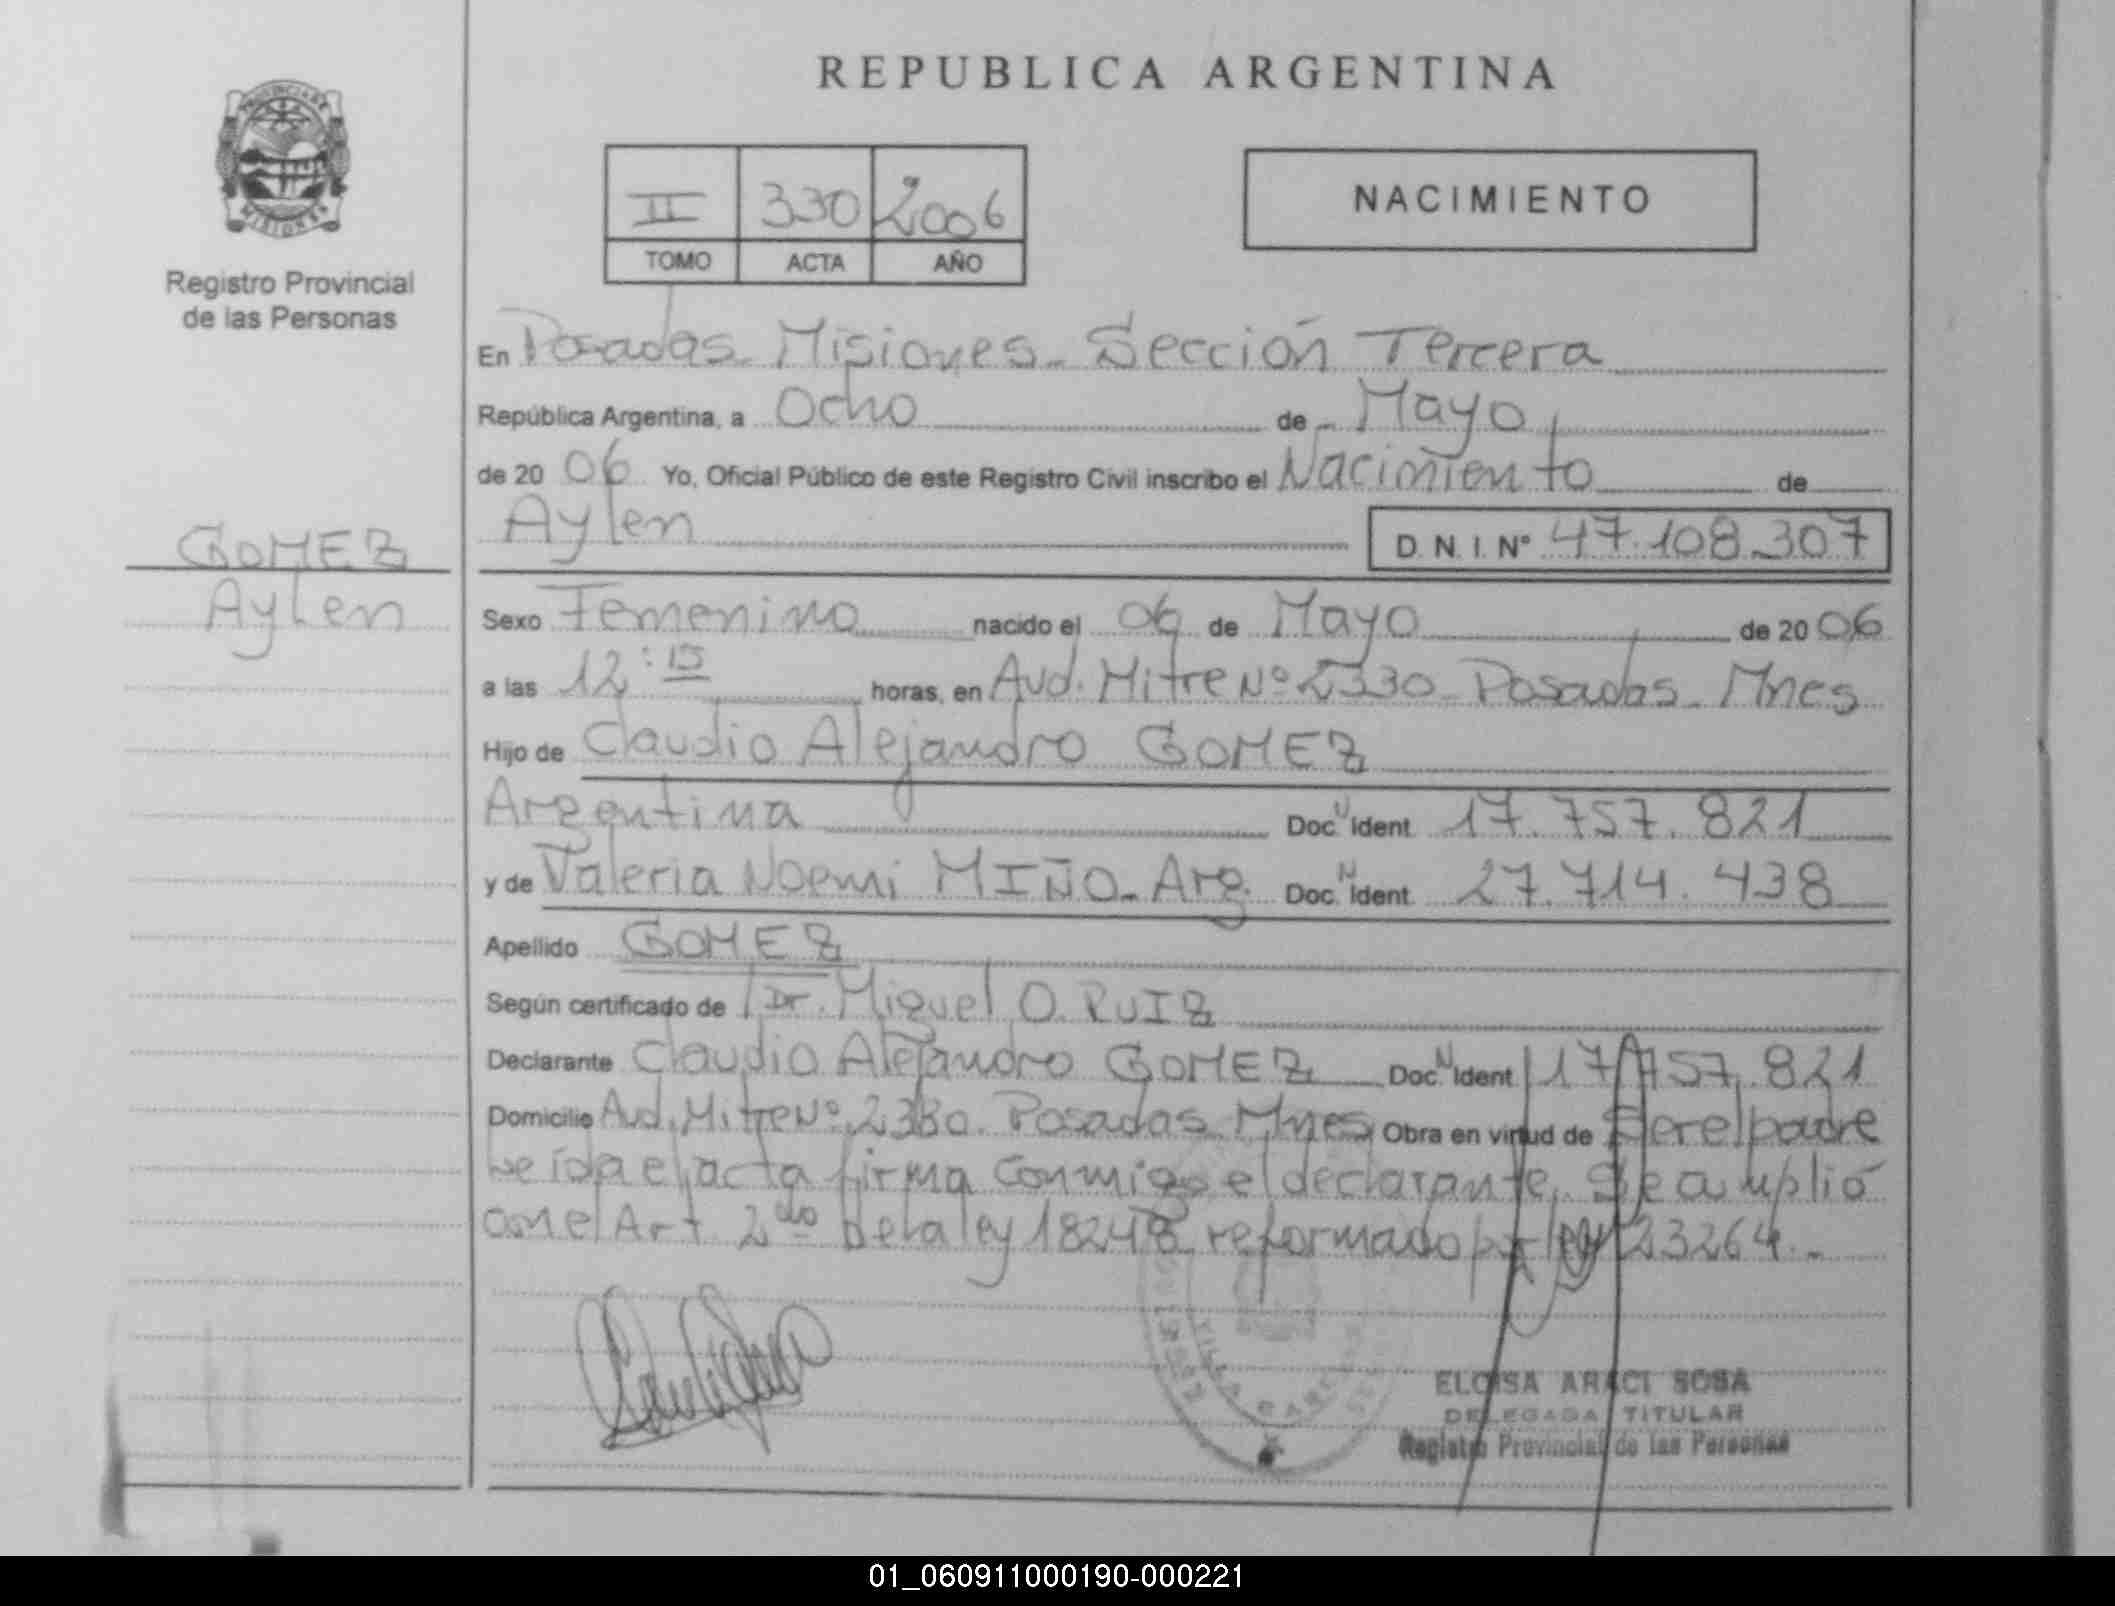 REPUBLICA ARGENTINA
PROVINCIA DE
MISIONES
Registro Provincial
de las Personas
II 330 2006
TOMO ACTA AÑO
NACIMIENTO
En Posadas - Misiones - Sección Tercera
República Argentina, a Ocho de Mayo
de 20 06 Yo, Oficial Público de este Registro Civil inscribo el Nacimiento de
Aylen D. N. I. Nº 47.108.307
GOMEZ
Aylen
Sexo Femenino nacido el 06 de Mayo de 20 06
a las 12:15 horas, en Avd. Mitre Nº 2330 - Posadas - Mnes
Hijo de Claudio Alejandro GOMEZ
Argentina Doc. N Ident. 17.757.821
y de Valeria Noemi MIÑO - Arg. Doc. N Ident. 27.714.438
Apellido GOMEZ
Según certificado de Dr. Miguel O. RUIZ
Declarante Claudio Alejandro GOMEZ Doc. N Ident. 17.757.821
Domicilio Avd. Mitre Nº 2330. Posadas - Mnes Obra en virtud de Ser el padre
Leída el acta firma conmigo el declarante. Se cumplió
con el Art. 2do de la ley 18248 reformado por ley 23264.-
VILLA CABELLO
ELOISA ARACI SOSA
DELEGADA TITULAR
Registro Provincial de las Personas
01_060911000190-000221